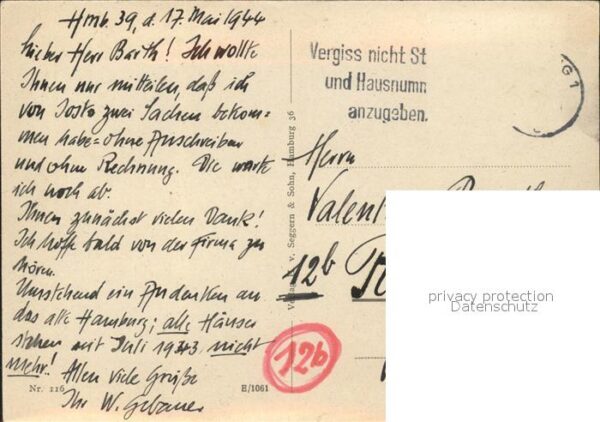 Hmb. 39, d. 17. Mai 1944
Lieber Herr Barth! Ich wollte
Ihnen nur mitteilen, daß ich
von Josto zwei Sachen bekom=
men habe = ohne Anschreiben
und ohne Rechnung. Die warte
ich noch ab.
Ihnen zunächst vielen Dank!
Ich hoffe bald von der Firma zu
hören.
Umstehend ein Andenken an
das alte Hamburg; alle Häuser
stehen seit Juli 1943 nicht
mehr!
Allen viele Grüße
Ihr W. Gebauer
Nr. 116
H/1061
v. Seggern & Sohn, Hamburg 36
Vergiss nicht St
und Hausnum
anzugeben.
G 1
Herrn
Valent
12b
12b
privacy protection
Datenschutz